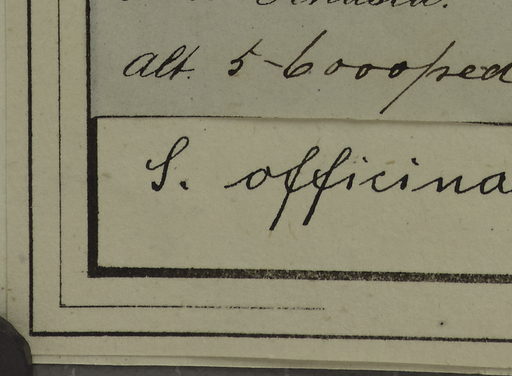 alt. 5-6000 ped
S. officina